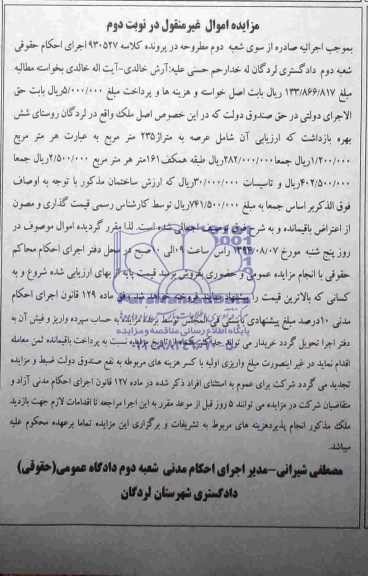 مزایده اموال غیرمنقول در نوبت دوم
بموجب اجرائیه صادره از سوی شعبه دوم مطروحه در پرونده کلاسه ۹۳۰۵۲۷ اجرای احکام حقوقی
شعبه دوم دادگستری لردگان له خدارحم حسنی علیه:آرش خالدی-آیت اله خالدی بخواسته مطالبه
مبلغ ۱۳۳/۸۶۶/۸۱۷ ریال بابت اصل خواسته و هزینه ها و پرداخت مبلغ ۵/۰۰۰/۰۰۰ریال بابت حق
الاجرای دولتی در حق صندوق دولت که در این خصوص اصل ملک واقع در لردگان روستای شش
بهره بازداشت که ارزیابی آن شامل عرصه به متراژ۲۳۵ متر مربع به عبارت هر متر مربع
۱/۲۰۰/۰۰۰ریال جمعا۲۸۲/۰۰۰/۰۰۰ریال طبقه همکف۱۶۱متر هر متر مربع ۲/۵۰۰/۰۰۰ریال جمعا
۴۰۲/۵۰۰/۰۰۰ریال و تاسیسات ۳۰/۰۰۰/۰۰۰ریال که ارزش ساختمان مذکور با توجه به اوصاف
فوق الذکربر اساس جمعا به مبلغ ۷۴۱/۵۰۰/۰۰۰ریال توسط کارشناس رسمی قیمت گذاری و مصون
از اعتراض باقیمانده و به شرح فوق توصیف اجمالی شده است. لذا مقرر گردیده اموال موصوف در
روز پنج شنبه مورخ ۱۳۹۴/۰۸/۰۷ راس ساعت ۹الی ۱۰صبح در محل دفتر اجرای احکام محاکم
حقوقی با انجام مزایده عمومی و حضوری بفروش برسد قیمت پایه از بهای ارزیابی شده شروع و به
کسانی که بالاترین قیمت را پیشنهاد نمایند فروخته خواهد شد. وفق ماده ۱۲۹ قانون اجرای احکام
مدنی ۱۰درصد مبلغ پیشنهادی بایستی فی المجلس توسط برنده مزایده به حساب سپرده واریز و فیش آن به
دفتر اجرا تحویل گردد خریدار می تواند حداکثر یکماه از تاریخ مزایده نسبت به پرداخت باقیمانده ثمن معامله
اقدام نماید در غیر اینصورت مبلغ واریزی اولیه با کسر هزینه های مربوطه به نفع صندوق دولت ضبط و مزایده
تجدید می گردد شرکت برای عموم به استثنای افراد ذکر شده در ماده ۱۲۷ قانون اجرای احکام مدنی آزاد و
متقاضیان شرکت در مزایده می توانند ۵ روز قبل از موعد مقرر به این اجرا مراجعه تا اقدامات لازم جهت بازدید
ملک مذکور انجام پذیردهزینه های مربوط به تشریفات و برگزاری این مزایده تماما برعهده محکوم علیه
میباشد.
مصطفی شیرانی-مدیر اجرای احکام مدنی شعبه دوم دادگاه عمومی(حقوقی)
دادگستری شهرستان لردگان